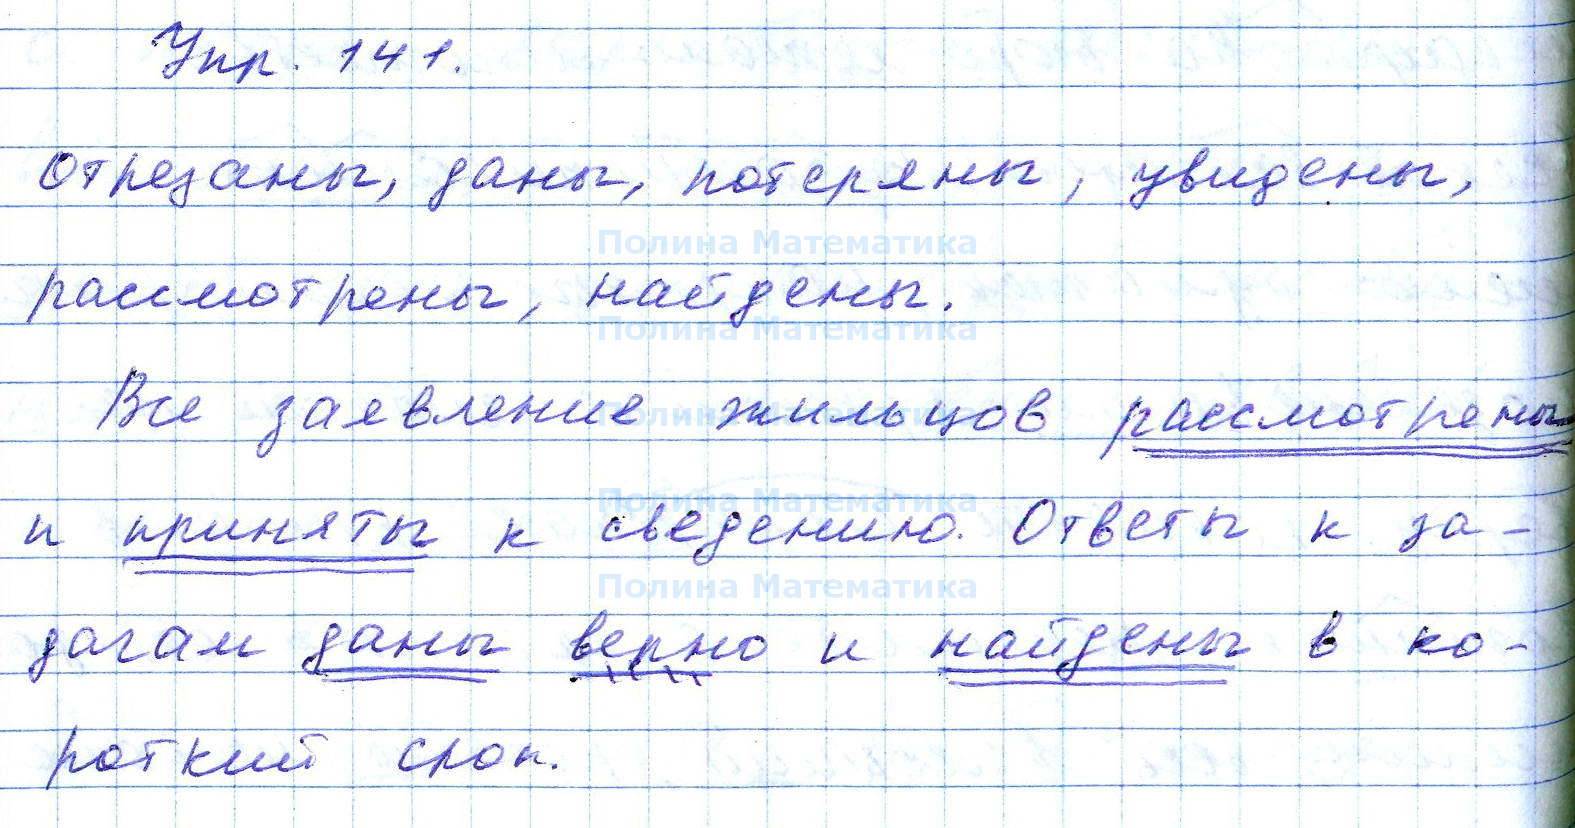 Упр. 141.
Отрезаны, даны, потеряны, увидены,
Полина Математика
рассмотрены, найдены.
Полина Математика
Все заявление жильцов рассмотрены
Полина Математика
Полина Математика
и приняты к сведению. Ответы к за-
Полина Математика
дачам даны верно и найдены в ко-
роткий срок.